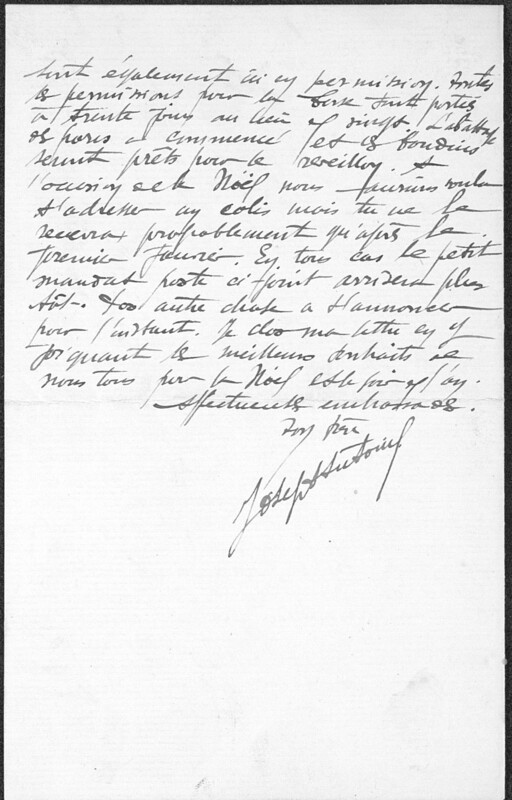 sont également ici en permission. Toutes
les permissions pour la Corse sont portées
à trente jours au lieu de vingt. L'abattage
des porcs a commencé et les boudins
seront prêts pour le réveillon. A
l'occasion de la Noël nous aurions voulu
t'adresser un colis mais tu ne le
recevrais probablement qu'après le
premier Janvier. En tous cas le petit
mandat poste ci joint arrivera plus
tôt. Pas autre chose à t'annoncer
pour l'instant. Je clos ma lettre en y
joignant les meilleurs souhaits de
nous tous pour la Noël et le jour de l'an.
Affectueuses embrassades.
Ton frère
Joseph Antoine